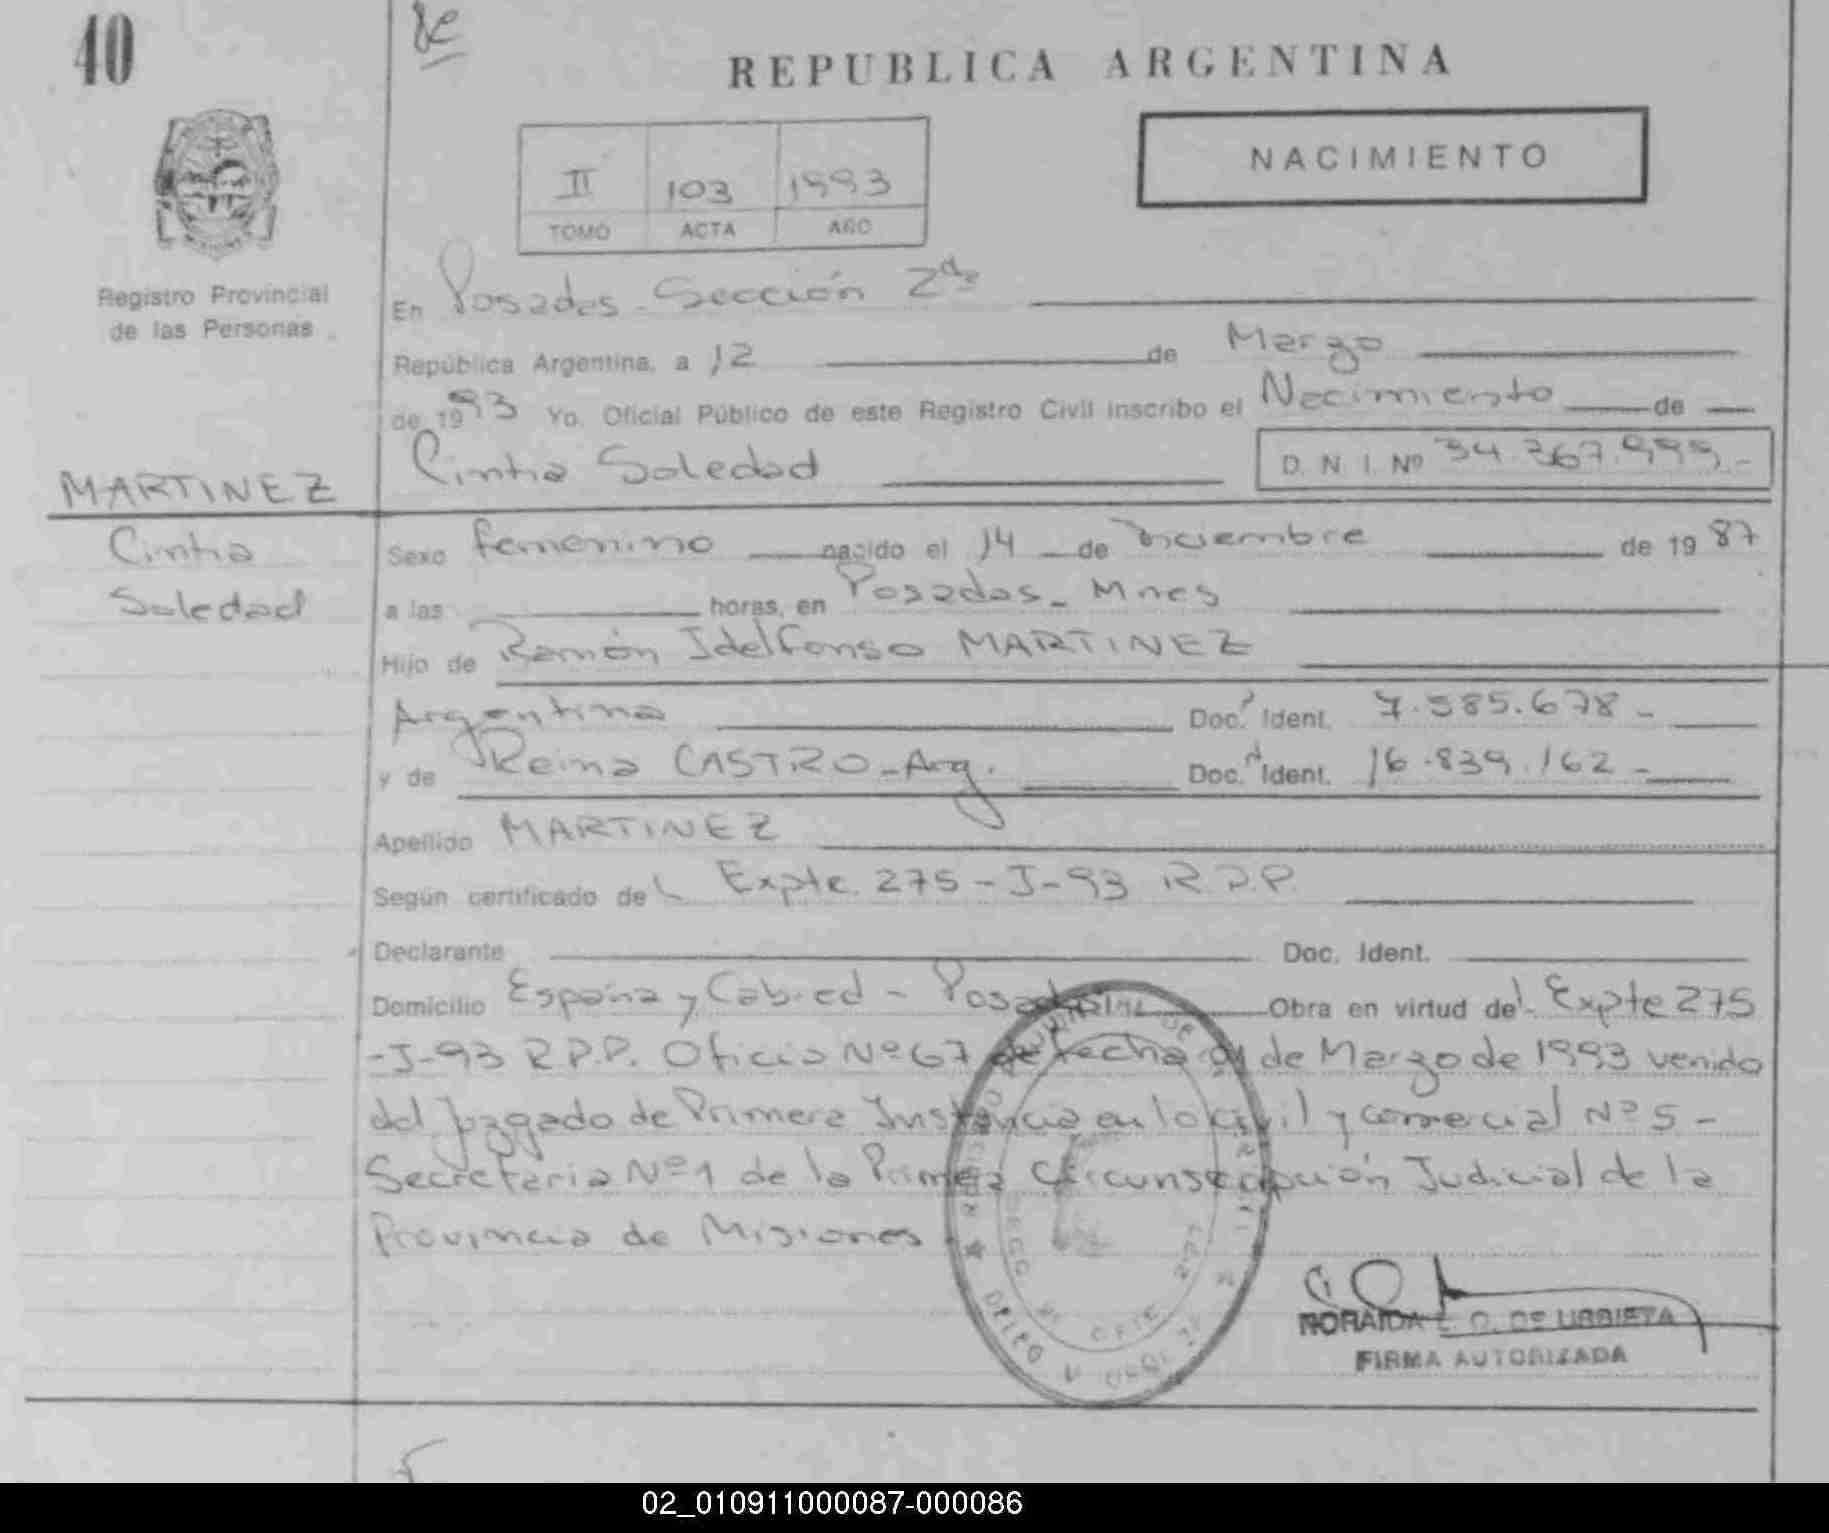 40
REPUBLICA ARGENTINA
NACIMIENTO
II 103 1993
TOMO ACTA AÑO
Registro Provincial
de las Personas
En Posadas - Sección 2da
República Argentina, a 12 de Marzo
de 1993 Yo, Oficial Público de este Registro Civil inscribo el Nacimiento de
Cintia Soledad D. N. I. Nº 34.367.999.-
MARTINEZ
Cintia
Soledad
Sexo femenino nacido el 14 de Diciembre de 1987
a las horas, en Posadas - Mnes
Hijo de Ramón Idelfonso MARTINEZ
Argentina Doc. Ident. 7.585.678 -
y de Reina CASTRO - Arg. Doc. Ident. 16.839.162 -
Apellido MARTINEZ
Según certificado del Expte. 275-J-93 R.P.P.
Declarante Doc. Ident.
Domicilio España y Cabred - Posadas Obra en virtud del Expte 275
-J-93 R.P.P. Oficio Nº 67 de fecha 01 de Marzo de 1993 venido
del Juzgado de Primera Instancia en lo Civil y comercial Nº 5 -
Secretaria Nº 1 de la Primera Circunscripción Judicial de la
Provincia de Misiones
NORAIDA E. O. DE URRIETA
FIRMA AUTORIZADA
02_010911000087-000086